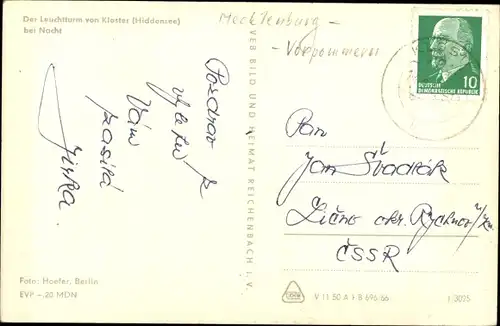 Der Leuchtturm von Kloster (Hiddensee)
bei Nacht
Mecklenburg -
- Vorpommern
10
DEUTSCHE
DEMOKRATISCHE REPUBLIK
Pozdrav
z
Vám
posílá
Jirka.
VEB BILD UND HEIMAT REICHENBACH I. V.
Pan
Jan Švadlák
okr. Rychnov n/Kn
ČSSR
Foto: Hoefer, Berlin
EVP –,20 MDN
V 11 50 A 1 B 696/66
1 3095